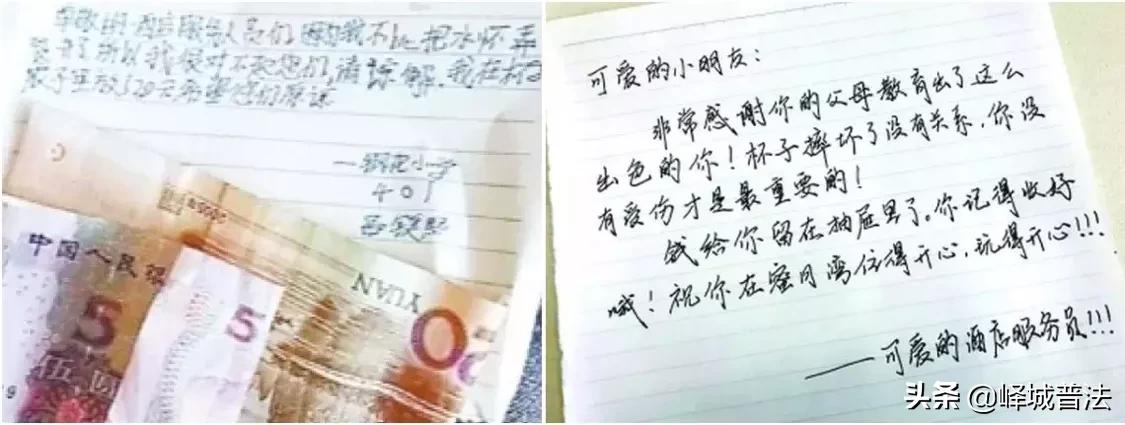 尊敬的酒店服务人员们,因为我不小心把水杯弄
我很对不起您们,请谅解,我在杯
一钢花小学
401
中国人民银
5
伍
5
YUAN
20
可爱的小朋友:
非常感谢你的父母教育出了这么
出色的你!杯子摔坏了没有关系,你没
有受伤才是最重要的!
钱给你留在抽屉里了。你记得收好
哦!祝你在蜜月湾住得开心,玩得开心!!!
——可爱的酒店服务员!!!
头条 @峄城普法